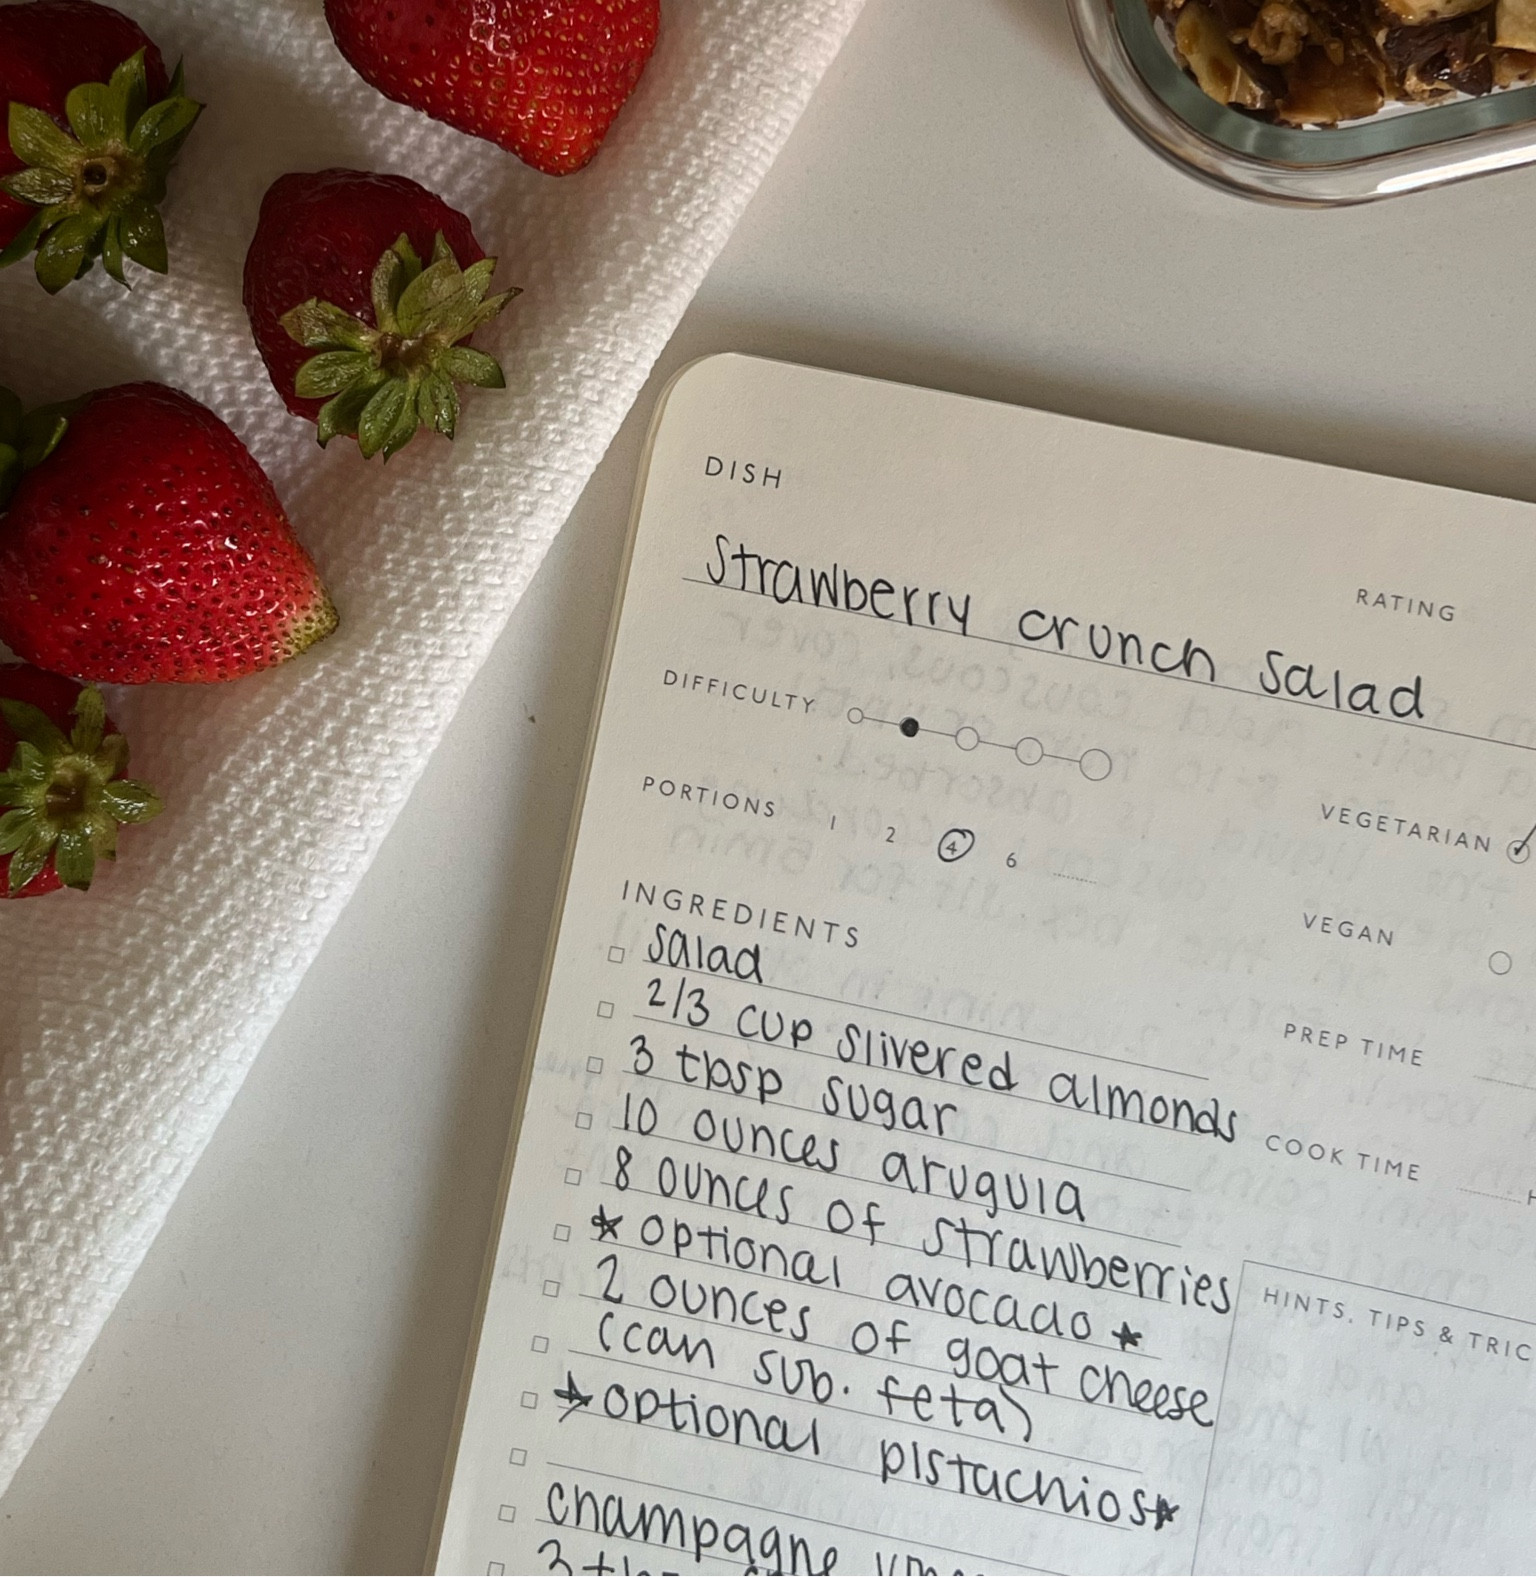 DISH
Strawberry crunch salad
RATING
DIFFICULTY
PORTIONS 1 2 4 6
VEGETARIAN
VEGAN
INGREDIENTS
salad
2/3 cup slivered almonds
3 tbsp sugar
10 ounces arugula
8 ounces of strawberries
*optional avocado*
2 ounces of goat cheese
(can sub. feta)
*optional pistachios*
champagne
PREP TIME
COOK TIME
HINTS, TIPS & TRIC